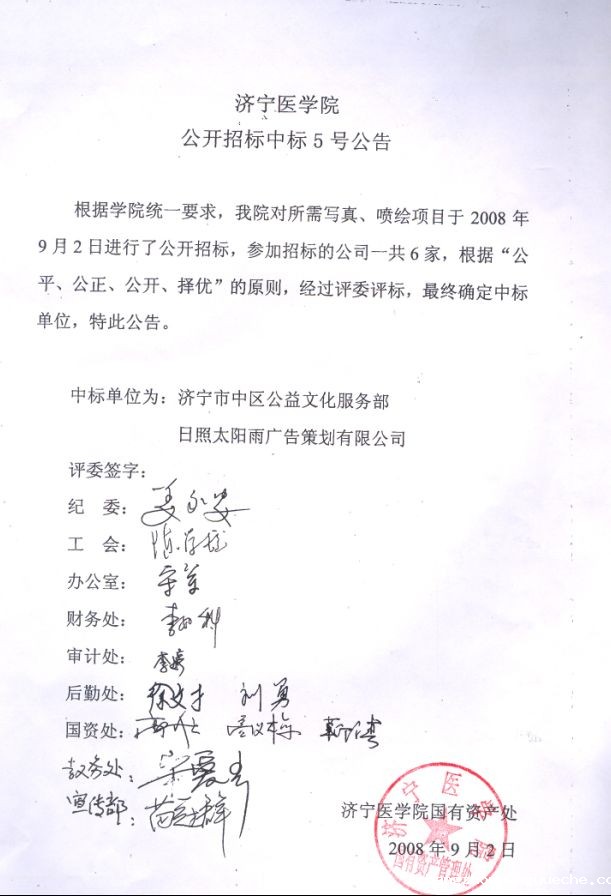 济宁医学院
公开招标中标5号公告
根据学院统一要求，我院对所需写真、喷绘项目于2008年
9月2日进行了公开招标，参加招标的公司一共6家，根据“公
平、公正、公开、择优”的原则，经过评委评标，最终确定中标
单位，特此公告。
中标单位为：济宁市中区公益文化服务部
日照太阳雨广告策划有限公司
评委签字：
纪 委：
工 会：
办公室：
财务处：
审计处：
后勤处：徐文才 刘勇
国资处：
教务处：
宣传部：
济宁医学院国有资产处
2008年9月2日
济宁医学院
国有资产管理处